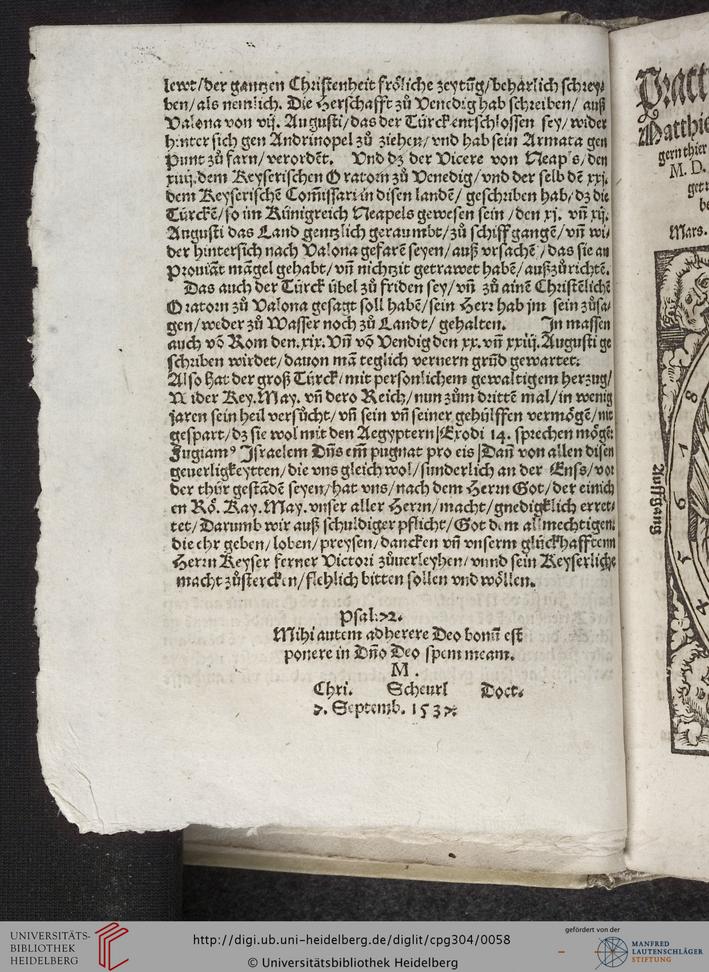 lewt/der gantzen Christenheit fröliche zeytũg/beharlich schrey-
ben/als nemlich. Die Herschafft zů Venedig hab schreiben/ auß
Valona von vij. Augusti/das der Türck entschlossen sey/wider
hinter sich gen Andrinopel zů ziehen/vnd hab sein Armata gen
Punt zů farn/verordēt. Vnd dz der Vicere von Neapls/den
xiiij.dem Keyserischen Oratorn zů Venedig/vnd der selb dē xxj.
dem Keyserischē Com̃issari in disen landē/ geschriben hab/dz die
Türckē/so im Künigreich Neapels gewesen sein /den xj. vñ xij.
Augusti das Land gentzlich geraumbt/zů schiff gangē/vñ wi-
der hintersich nach Valona gefarē seyen/auß vrsachē /das sie an
Prouiāt māgel gehabt/vñ nichtzit getrawet habē/außzůrichtē.
Das auch der Türck übel zů friden sey/vñ zů ainē Christēlichē
Oratorn zů Valona gesagt soll habē/sein Herr hab jm sein zůsa-
gen/weder zů Wasser noch zů Landt/ gehalten. In massen
auch vō Rom den.xix.Vñ vō Vendig den xx.vñ xxiij.Augusti ge
schriben wirdet/dauon mā teglich vernern grũd gewartet.
Also hat der groß Türck/mit personlichem gewaltigem herzug/
Wider Key.May.vñ dero Reich/nun zům drittē mal/in wenig
jaren sein heil versůcht/vñ sein vñ seiner gehülffen vermögē/nit
gespart/dz sie wol mit den Aegyptern/Exodi 14. sprechen mögē:
Fugiamꝰ Israelem Dñs em̃ pugnat pro eis/Dañ von allen disen
geuerligkeytten/die vns gleich wol/sunderlich an der Enß/vor
der thür gestādē seyen/hat vns/nach dem Herrn Got/der einich
en Rö.Kay.May.vnser aller Herrn/macht/gnedigklich erret-
tet/Darumb wir auß schuldiger pflicht/Got dem allmechtigen
die ehr geben/loben/preysen/dancken vñ vnserm glückhafftenn
Herrn Keyser ferner Victori zůuerleyhen/vnnd sein Keyserliche
macht zůstercken/flehlich bitten sollen vnd wöllen.
Psal:72.
Mihi autem adherere Deo bonũ est
ponere in Dño Deo spem meam.
M.
Chri. Scheurl Doct.
7. Septemb. 1537.
Pract
Matthie
gern thier
M. D.
Mars.
Auffgang
8
7
6
5
4
UNIVERSITÄTS-
BIBLIOTHEK
HEIDELBERG
http://digi.ub.uni-heidelberg.de/diglit/cpg304/0058
© Universitätsbibliothek Heidelberg
gefördert von der
MANFRED
LAUTENSCHLÄGER
STIFTUNG